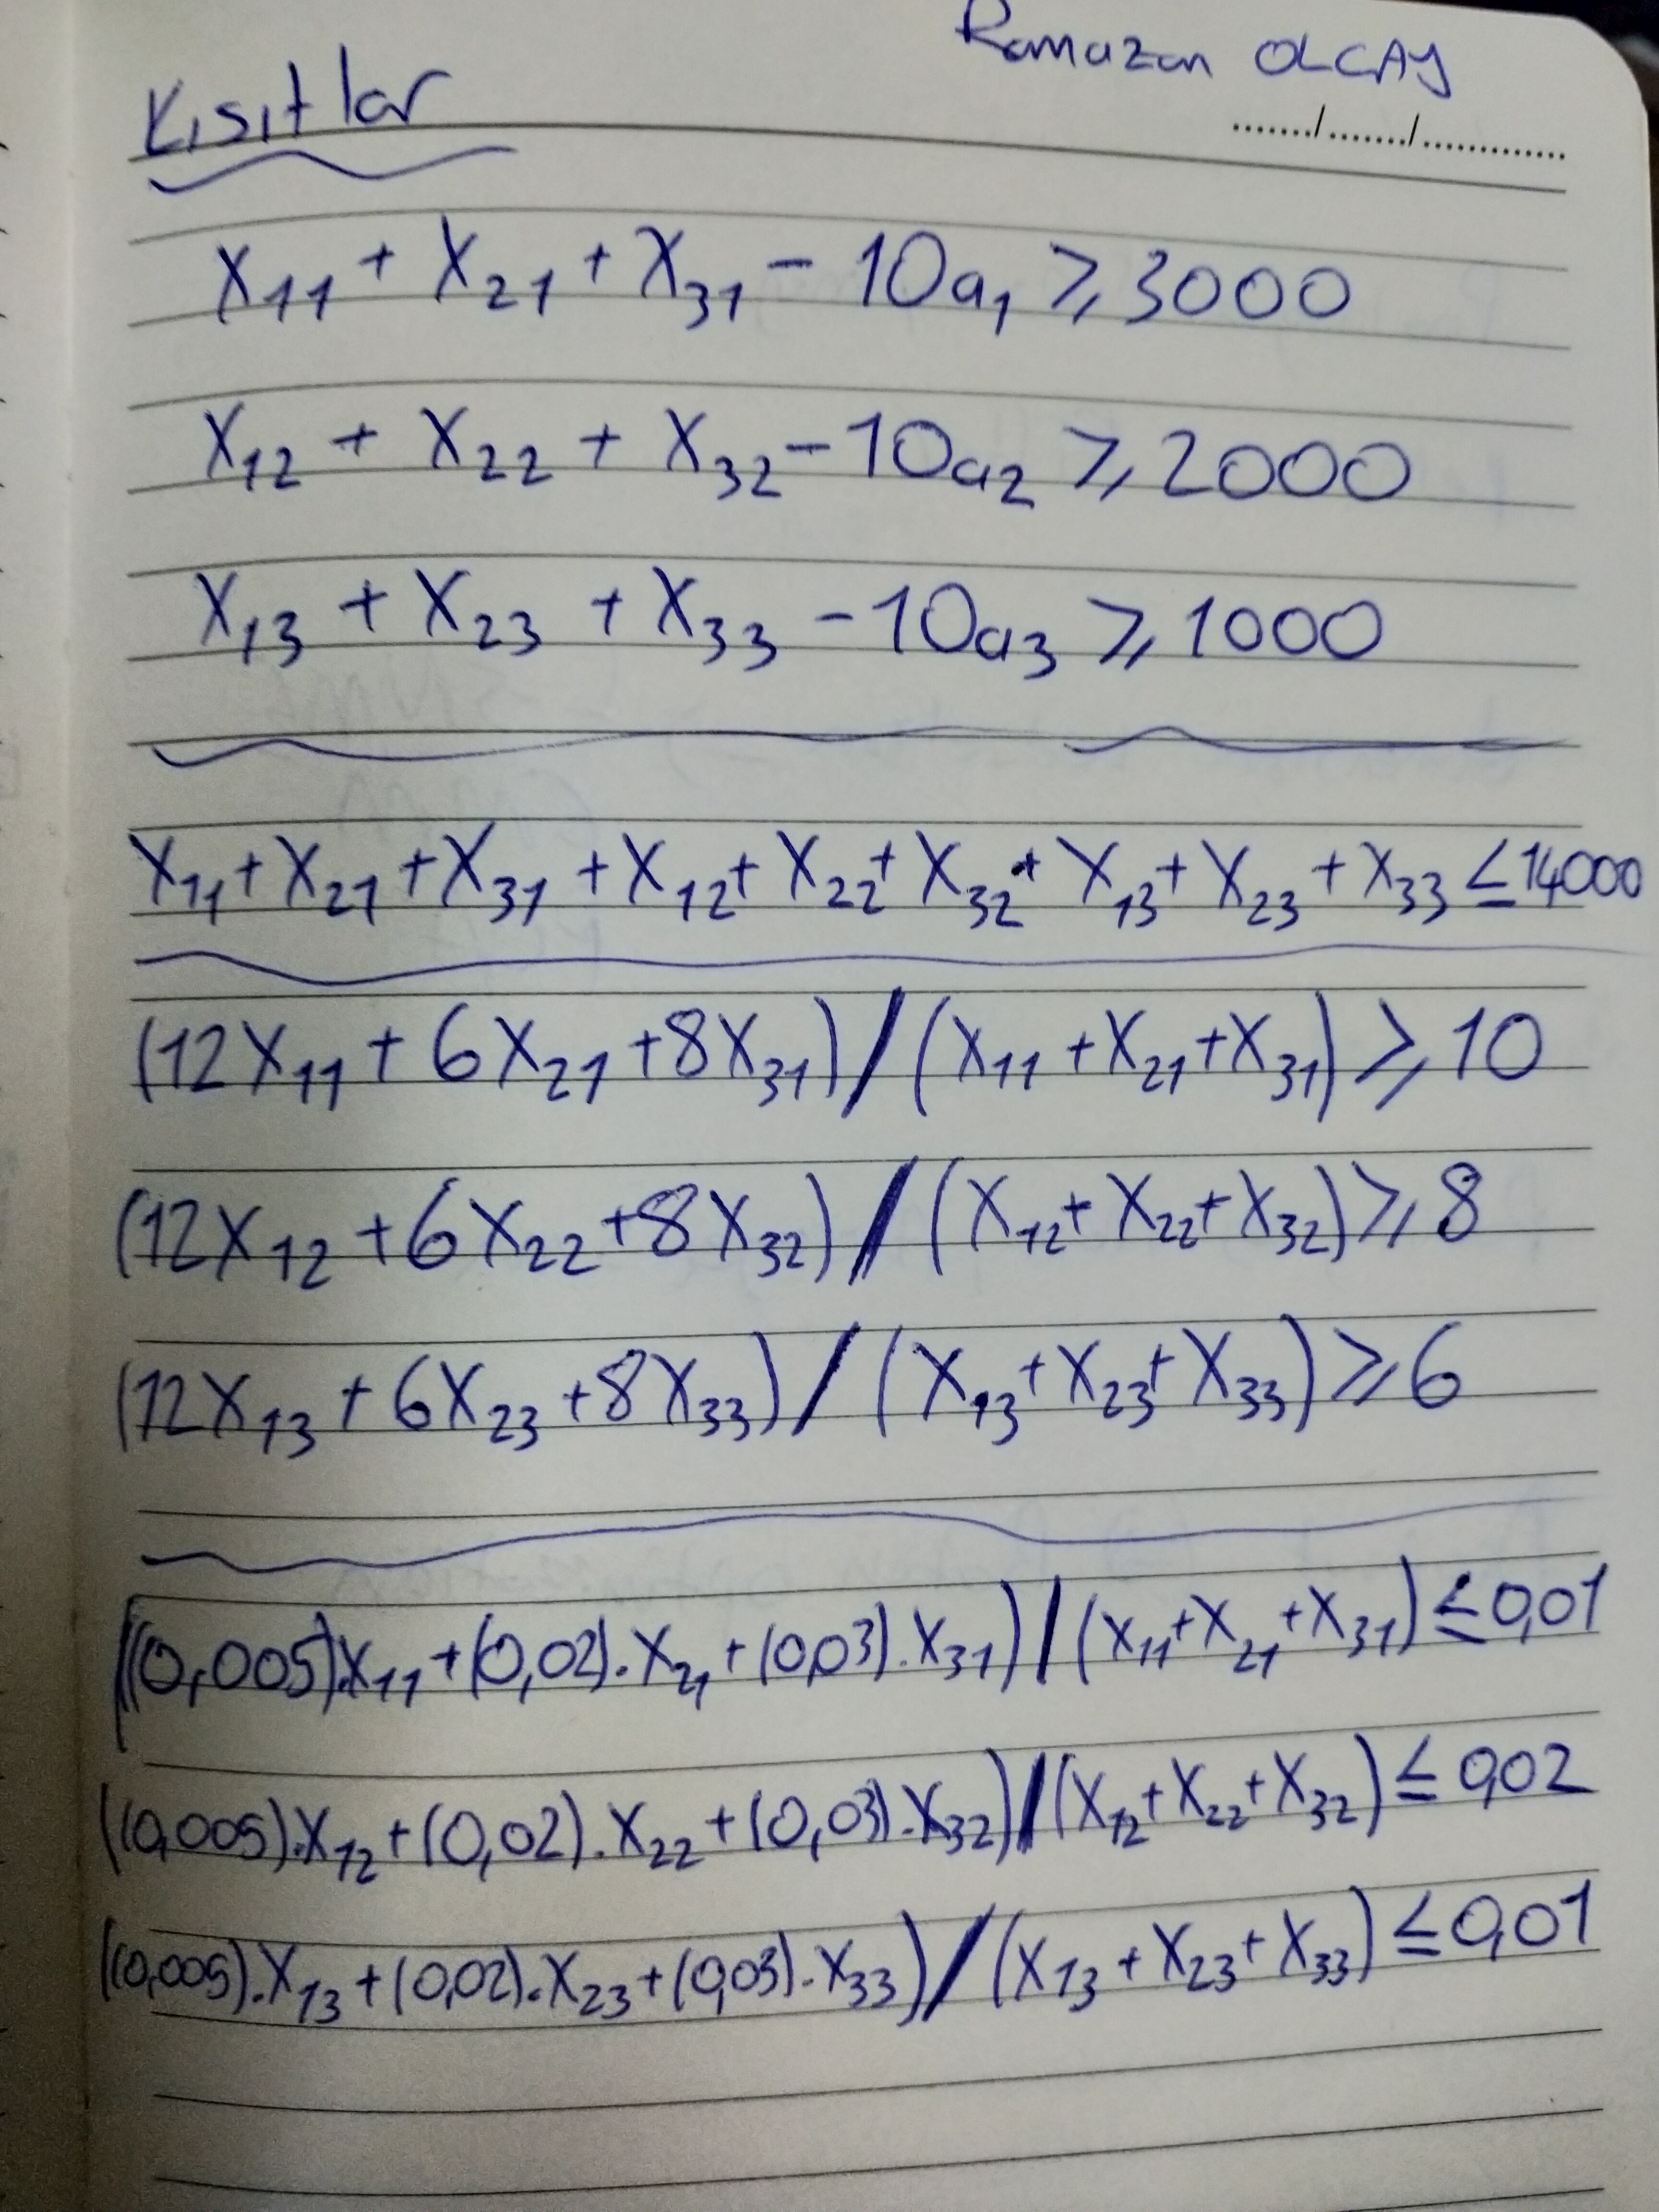 Ramazan OLCAY
Kısıtlar
......./......../.............
X₁₁ + X₂₁ + X₃₁ - 10a₁ ≥ 3000
X₁₂ + X₂₂ + X₃₂ - 10a₂ ≥ 2000
X₁₃ + X₂₃ + X₃₃ - 10a₃ ≥ 1000
X₁₁ + X₂₁ + X₃₁ + X₁₂ + X₂₂ + X₃₂ + X₁₃ + X₂₃ + X₃₃ ≤ 14000
(12X₁₁ + 6X₂₁ + 8X₃₁) / (X₁₁ + X₂₁ + X₃₁) ≥ 10
(12X₁₂ + 6X₂₂ + 8X₃₂) / (X₁₂ + X₂₂ + X₃₂) ≥ 8
(12X₁₃ + 6X₂₃ + 8X₃₃) / (X₁₃ + X₂₃ + X₃₃) ≥ 6
((0,005).X₁₁ + (0,02).X₂₁ + (0,03).X₃₁) / (X₁₁ + X₂₁ + X₃₁) ≤ 0,01
((0,005).X₁₂ + (0,02).X₂₂ + (0,03).X₃₂) / (X₁₂ + X₂₂ + X₃₂) ≤ 0,02
((0,005).X₁₃ + (0,02).X₂₃ + (0,03).X₃₃) / (X₁₃ + X₂₃ + X₃₃) ≤ 0,01